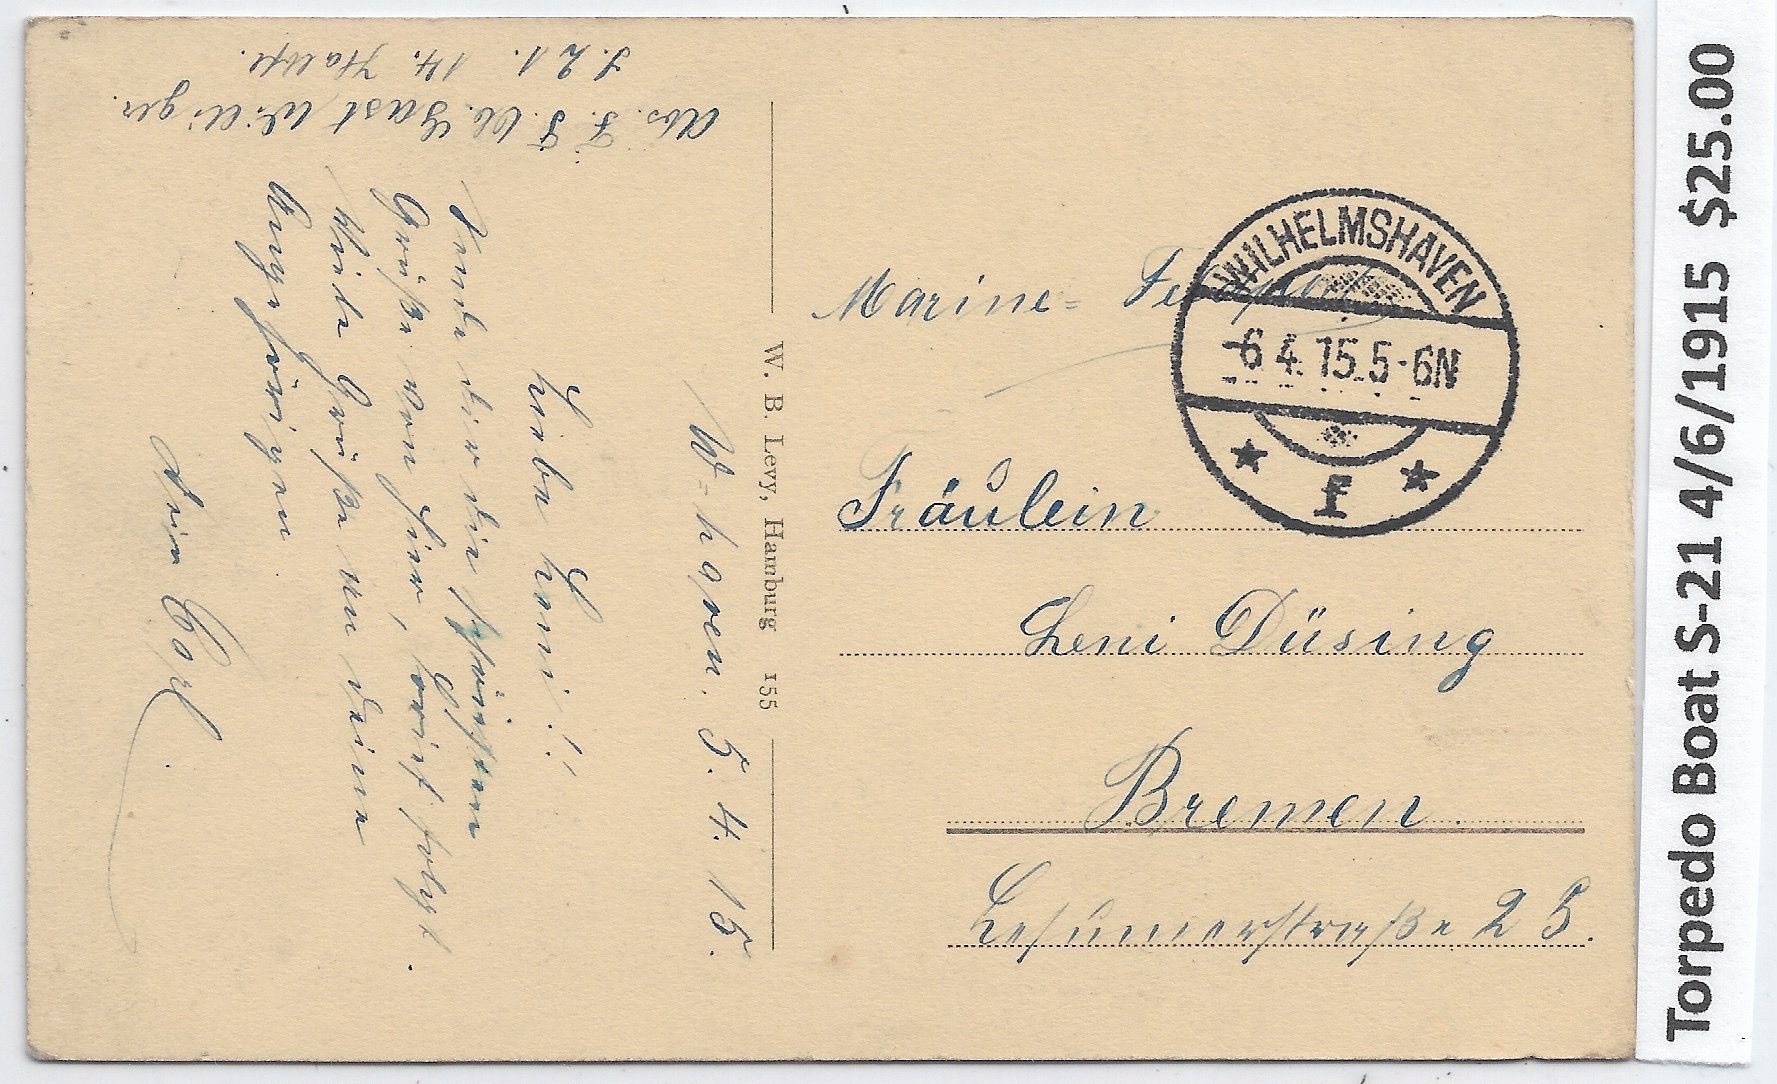 Marine- Feldpost
WILHELMSHAVEN
-6.4.15.5-6N
* f *
Fräulein
Leni Düsing
Bremen.
Lesumerstraße 25.
W. B. Levy, Hamburg 155
W-haven. 5. 4. 15.
Liebe Leni!!
Sende dir die schönsten
Grüße von hier, Brief folgt.
Viele Grüße an deine
Angehörigen
Dein Carl.
Abs. F. T. Gast Williger.
S. 21. 14. Halbfl.
Torpedo Boat S-21 4/6/1915 $25.00